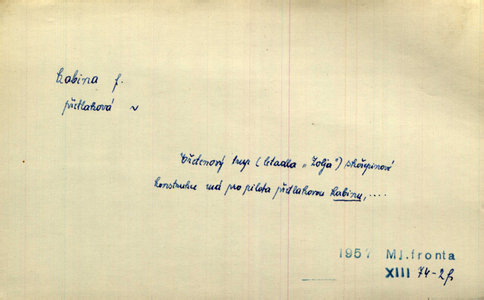 kabina f.
přetlaková ~
Vřetenový trup (letadla „Zolja") skořepinové
konstrukce má pro pilota přetlakovou kabinu, ....
1957 Ml.fronta
XIII 74-2f